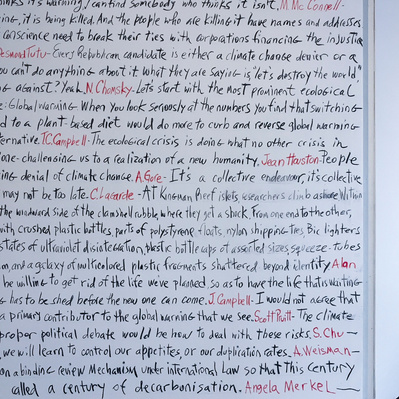 inks it's warming, I can find somebody who thinks it isn't. M. Mc Connell-
ing, it is being killed. And the people who are killing it have names and addresses
conscience need to break their ties with corporations financing the injustice
Desmond Tutu - Every Republican candidate is either a climate change denier or a
ou can't do anything about it. What they are saying is, "let's destroy the world"
ng against? Yeah. N. Chomsky - Let's start with the most prominent ecological
e: Global warming. When you look seriously at the numbers you find that switching
d to a plant-based diet would do more to curb and reverse global warming
ternative. T.C. Campbell - The ecological crisis is doing what no other crisis in
one - challenging us to a realization of a new humanity. Jean Houston - People
ing denial of climate change. A. Gore - It's a collective endeavour, it's collective
may not be too late. C. Lagarde - At Kingman Reef islets, researchers climb ashore. Within
the windward side of the clamshell rubble, where they get a shock. From one end to the other,
with crushed plastic bottles, parts of polystyrene floats, nylon shipping ties, Bic lighters
states of ultraviolet disintegration, plastic bottle caps of assorted sizes, squeeze-tubes
on, and a galaxy of multicolored plastic fragments shattered beyond identity Alan
be willing to get rid of the life we've planned so as to have the life that is waiting
g has to be shed before the new one can come. J. Campbell - I would not agree that
a primary contributor to the global warming that we see. Scott Pruitt - The climate
proper political debate would be how to deal with these risks. S. Chu -
we will learn to control our appetites, or our duplication rates. A. Weisman -
on a binding review mechanism under international law so that this century
called a century of decarbonisation. Angela Merkel -